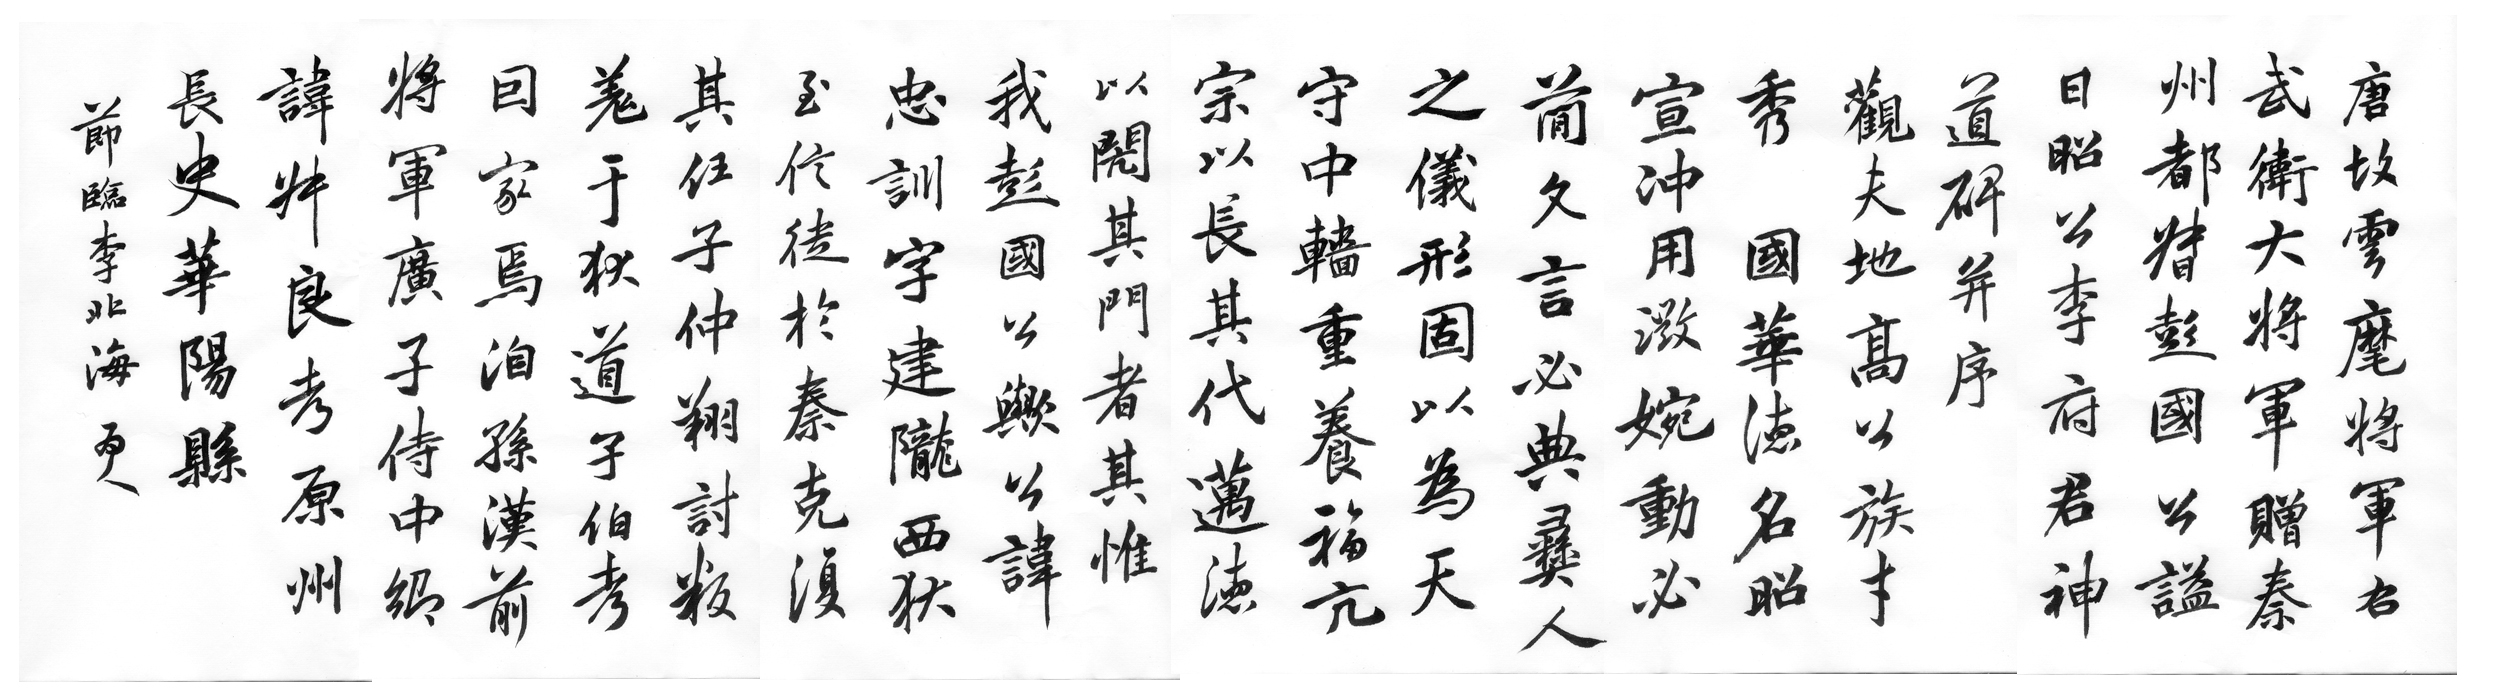 唐故雲麾將軍右
武衛大將軍贈秦
州都督彭國公謚
曰昭公李府君神
道碑并序
觀夫地高公族才
秀國華德名昭
宣沖用微婉動必
簡久言必典彝人
之儀形固以為天
守中轖重養福亢
宗以長其代邁德
以閱其門者其惟
我彭國公歟公諱
忠訓字建隴西狄
至信徒於秦克復
其任子仲翔討叛
羌于狄道子伯考
因家焉洎孫漢前
將軍廣子侍中紹
諱昇良考原州
長史華陽縣
節臨李北海